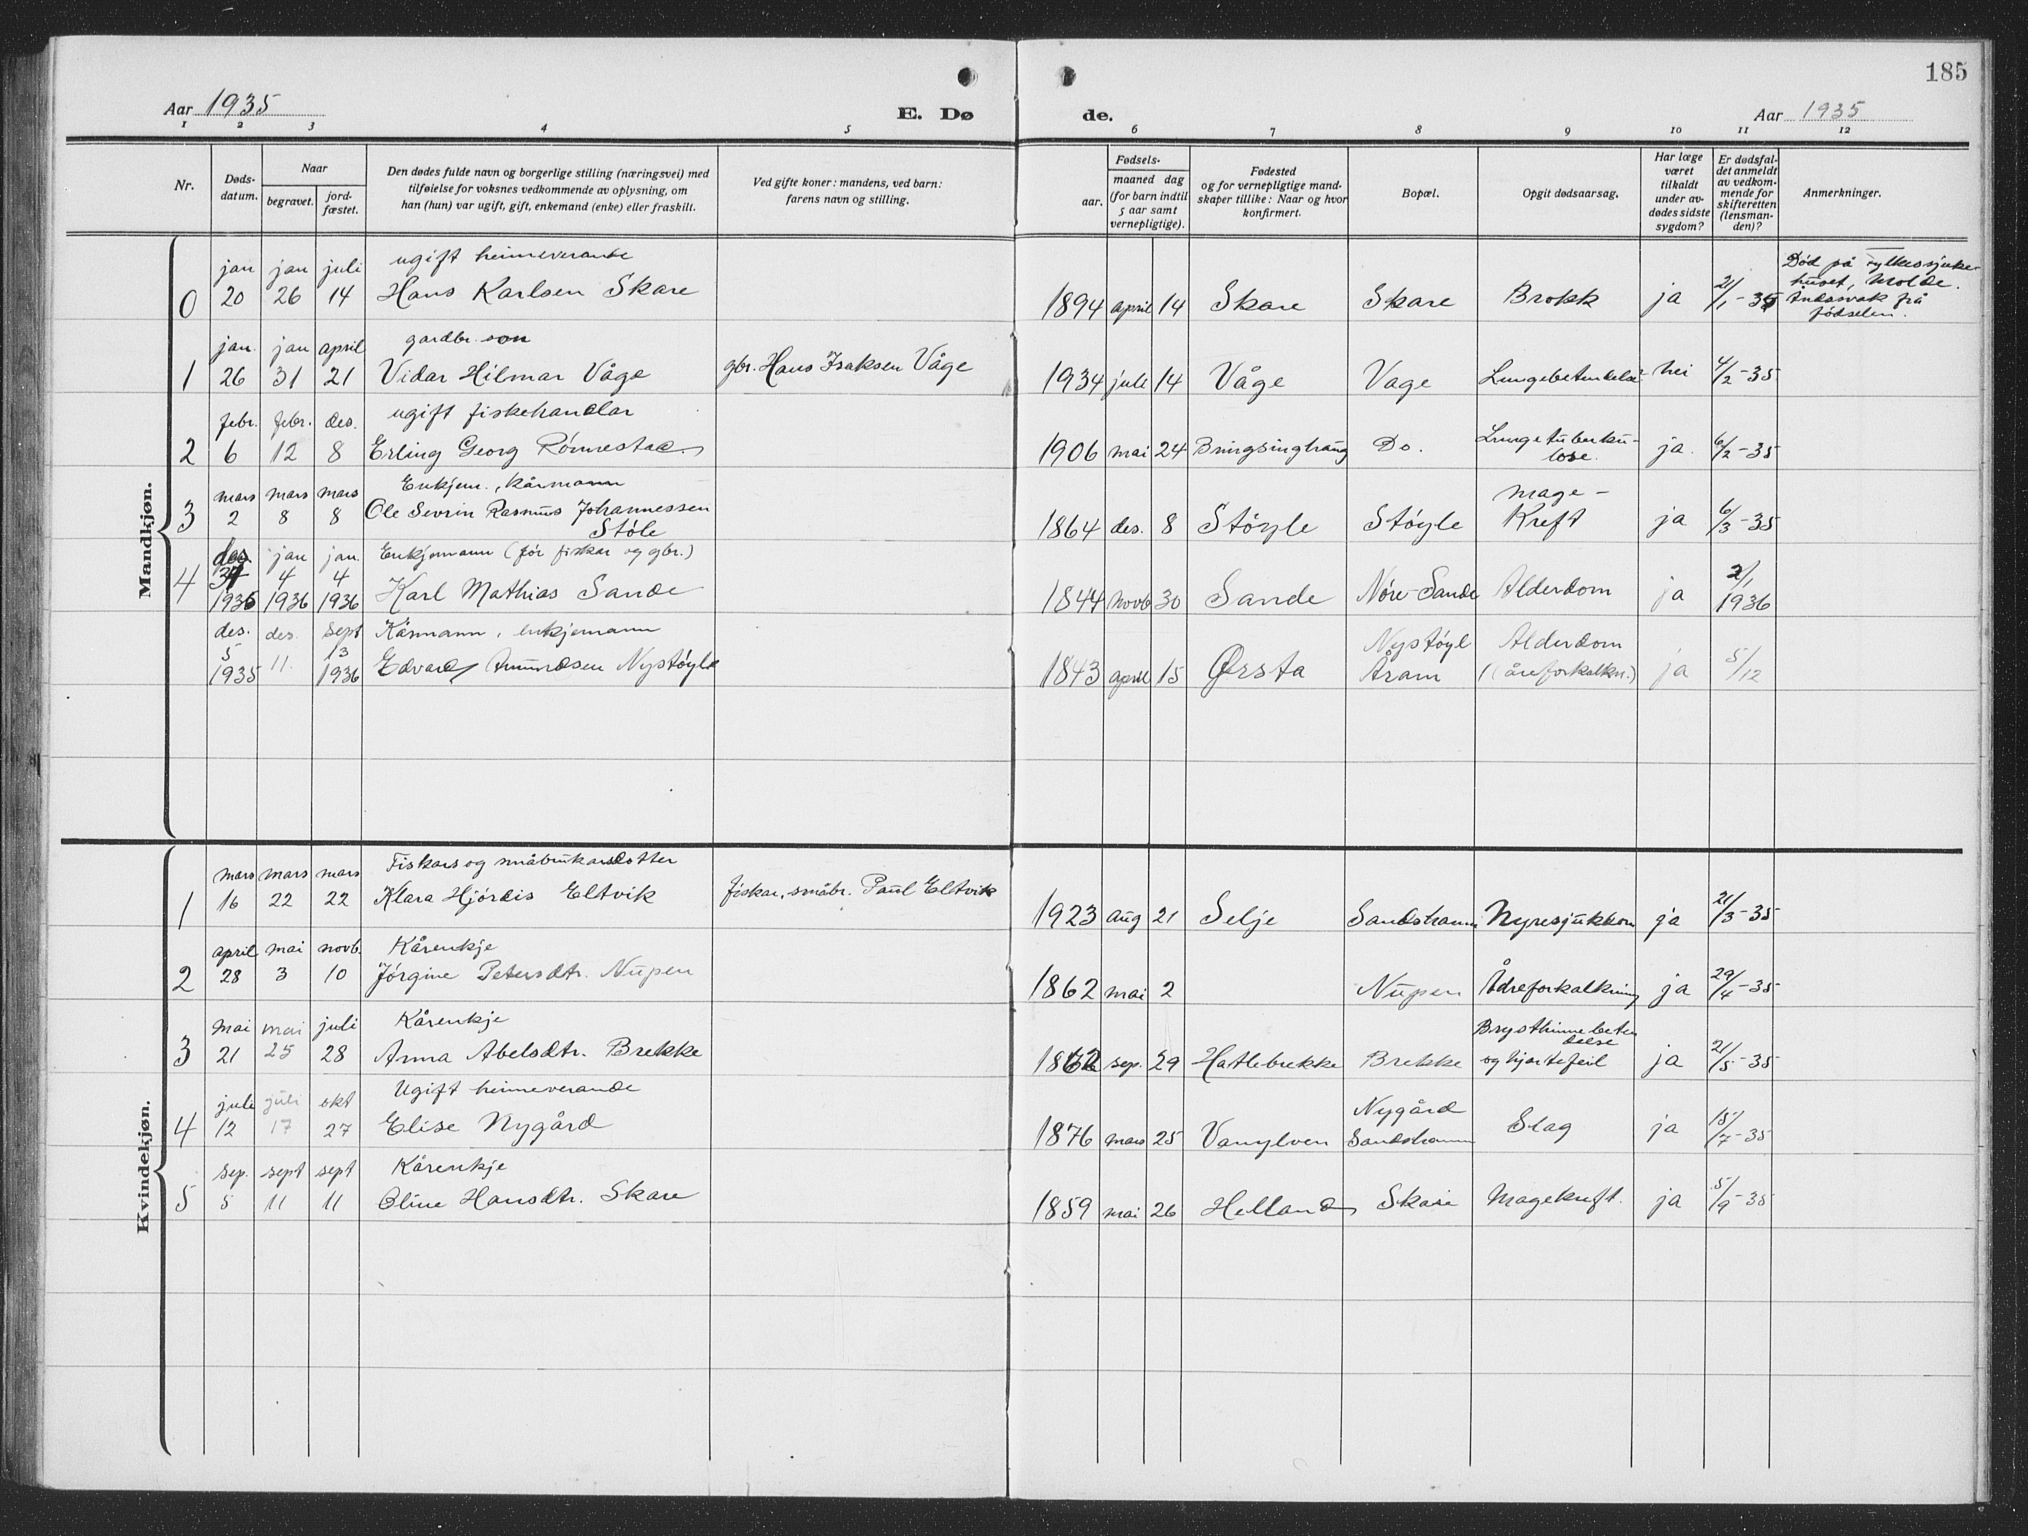 185
Aar 1935
E. Dø
de.
Aar 1935
1 2 3 4 5 6 7 8 9 10 11 12
Nr.
Døds-
datum.
Naar
begravet.
jord-
fæstet.
Den dødes fulde navn og borgerlige stilling (næringsvei) med
tilføielse for voksnes vedkommende av oplysning, om
han (hun) var ugift, gift, enkemand (enke) eller fraskilt.
Ved gifte koner: mandens, ved barn:
farens navn og stilling.
Fødsels-
aar.
maaned dag
(for barn indtil
5 aar samt
vernepligtige).
Fødested
og for vernepligtige mand-
skaper tillike: Naar og hvor
konfirmert.
Bopæl.
Opgit dødsaarsag.
Har læge
været
tilkaldt
under av-
dødes sidste
sygdom?
Er dødsfal-
det anmeldt
av vedkom-
mende for
skifteretten
(lensman-
den)?
Anmerkninger.
Mandkjøn.
jan jan juli ugift heimeverande
0 20 26 14 Hans Karlsen Skare 1894 april 14 Skare Skare Brokk ja 21/1-35
Død på Fylkessjuke-
huset, Molde.
Åndsvak frå
fødselen.
jan. jan april gardbr. son
1 26 31 21 Vidar Hilmar Våge gbr. Hans Isaksen Våge 1934 juli 14 Våge Vage Lungebetendelse nei 4/2-35
febr. febr. des. ugift fiskehandlar
2 6 12 8 Erling Georg Rømrestad 1906 mai 24 Bringsinghaug Do. Lungetuberku-
lose. ja. 6/2-35
mars mars mars Enkjem., kårmann
3 2 8 8 Ole Sevrin Rasmus Johannessen
Støle 1864 des. 8 Støyle Støyle Mage-
Kreft ja 6/3-35
des jan jan. Enkjemann (før fiskar og gbr.)
4 31 4 4 Karl Mathias Sande 1844 novb 30 Sande Nøre-Sande Alderdom ja 2/1
1935 1936 1936 1936
des. des. sept Kårmann, enkjemann
5 11. 13
1935 1936 Edvard Amundsen Nystøyl 1843 april 15 Ørsta Nystøyl
Åram Alderdom
(åreforkalkn.) ja 5/12
Kvindekjøn.
mars mars mars Fiskars og småbrukarsdotter
1 16 22 22 Klara Hjørdis Eltvik fiskar, småbr. Paul Eltvik 1923 aug 21 Selje Sandshamn Nyresjukdom ja 21/3-35
april mai novb. Kårenkje
2 28 3 10 Jørgine Petersdtr. Nupen 1862 mai 2 Nupen Ådreforkalkning ja 29/4-35
mai mai juli Kårenkje
3 21 25 28 Anna Abelsdtr. Brekke 1862 sep. 29 Hatlebrekke Brekke Brysthinnebeten
delse
og hjartefeil ja 21/5-35
juli juli okt Ugift heimeverande
4 12 17 27 Elise Nygård 1876 mars 25 Vanylven Nygård
Sandshamn Slag ja 15/7-35
sep. sept sept Kårenkje
5 5 11 11 Oline Hansdtr. Skare 1859 mai 26 Helland Skare Magekreft. ja 5/9-35